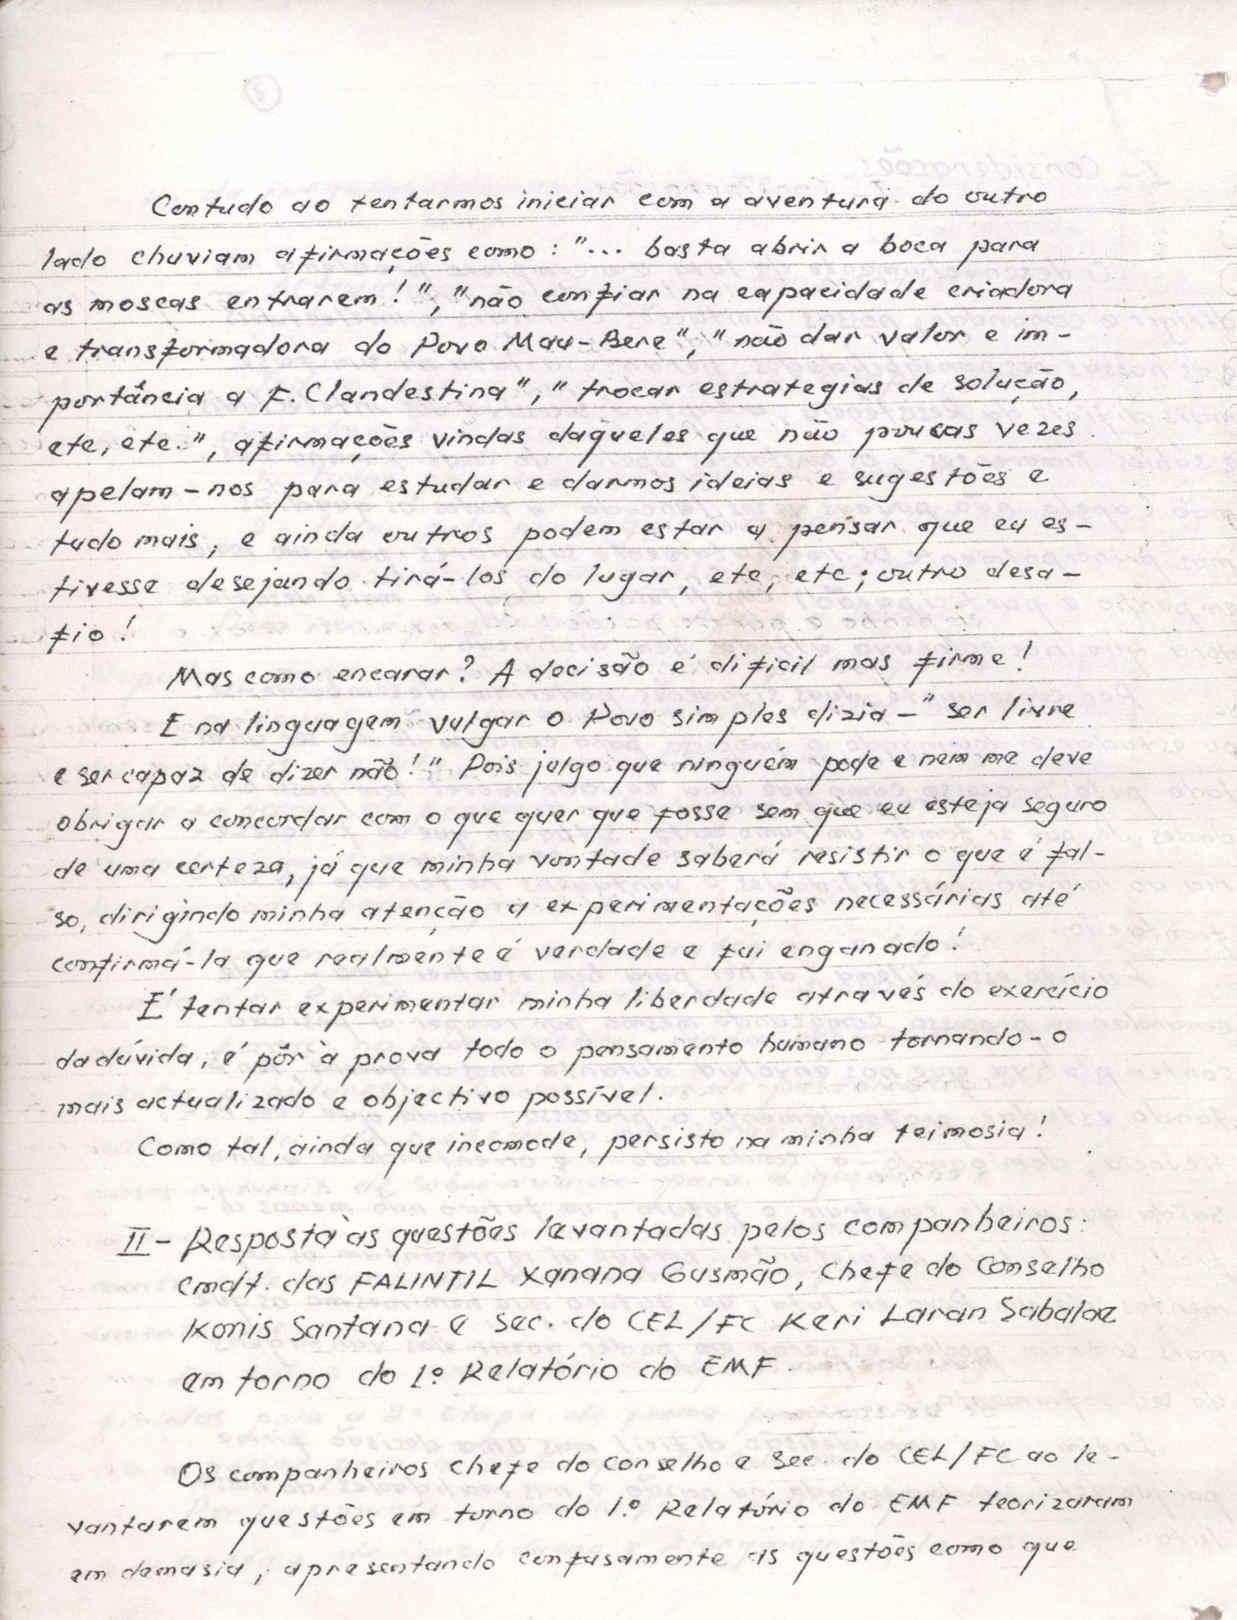 Contudo ao tentarmos iniciar com a aventura do outro
lado chuviam afirmações como: "... basta abrir a boca para
as moscas entrarem!", "não confiar na capacidade criadora
e transformadora do Povo Mau-Bere", "não dar valor e im-
portância a F. Clandestina", "trocar estrategias de solução,
etc, etc.", afirmações vindas daqueles que não poucas vezes
apelam-nos para estudar e darmos ideias e sugestões e
tudo mais, e ainda outros podem estar a pensar que eu es-
tivesse desejando tirá-los do lugar, etc, etc; outro desa-
fio!
Mas como encarar? A decisão é dificil mas firme!
E na linguagem vulgar o Povo simples dizia - "ser livre
e ser capaz de dizer não!" Pois julgo que ninguém pode e nem me deve
obrigar a concordar com o que quer que fosse sem que eu esteja seguro
de uma certeza, já que minha vontade saberá resistir o que é fal-
so, dirigindo minha atenção a experimentações necessárias até
confirmá-la que realmente é verdade e fui enganado!
É tentar experimentar minha liberdade através do exercício
da dúvida, é pôr à prova todo o pensamento humano tornando-o
mais actualizado e objectivo possível.
Como tal, ainda que incomode, persisto na minha teimosia!
II - Resposta às questões levantadas pelos companheiros:
cmdt. das FALINTIL Xanana Gusmão, Chefe do Conselho
Konis Santana e Sec. do CEL/FC Keri Laran Sabalae
em torno do 1º Relatório do EMF.
Os companheiros Chefe do Conselho e Sec. do CEL/FC ao le-
vantarem questões em torno do 1.º Relatório do EMF teorizaram
em demasia, apresentando confusamente as questões como que